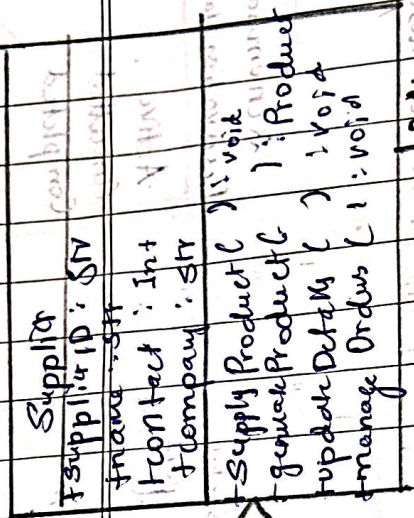 Supplier
+SupplierID : Str
+name : Str
+contact : Int
+company : Str
+Supply Product ( ) : void
+generateProduct ( ) : Product
+updateDetails ( ) : void
+manage Orders ( ) : void